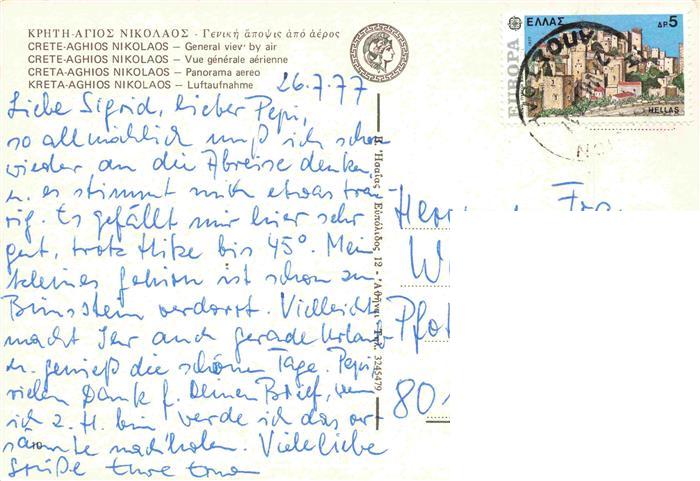 ΚΡΗΤΗ-ΑΓΙΟΣ ΝΙΚΟΛΑΟΣ - Γενική ἄποψις ἀπό ἀέρος
CRETE-AGHIOS NIKOLAOS – General view by air
CRETE-AGHIOS NIKOLAOS – Vue générale aérienne
CRETA-AGHIOS NIKOLAOS – Panorama aereo
KRETA-AGHIOS NIKOLAOS – Luftaufnahme
26.7.77
Liebe Sigrid, lieber Pepi,
so allmählich muß ich schon
wieder an die Abreise denken,
u. es stimmt mich etwas trau
rig. Es gefällt mir hier sehr
gut, trotz Hitze bis 45°. Mein
kleines Gehirn ist schon zu
Bimsstein verdorrt. Vielleicht
macht Ihr auch gerade Urlaub
u. genießt die schönen Tage. Pepi
vielen Dank f. Deinen Brief, wenn
ich z. H. bin werde ich das ver
säumte nachholen. Viele liebe
Grüße Eure
10
ΕΛΛΑΣ
ΔΡ. 5
EUROPA
HELLAS
Ε. Ἡσαΐας Εὐπόλιδος 12 - Ἀθῆναι - Τηλ. 3245479
Herrn u. Fr
W
Pfo
80